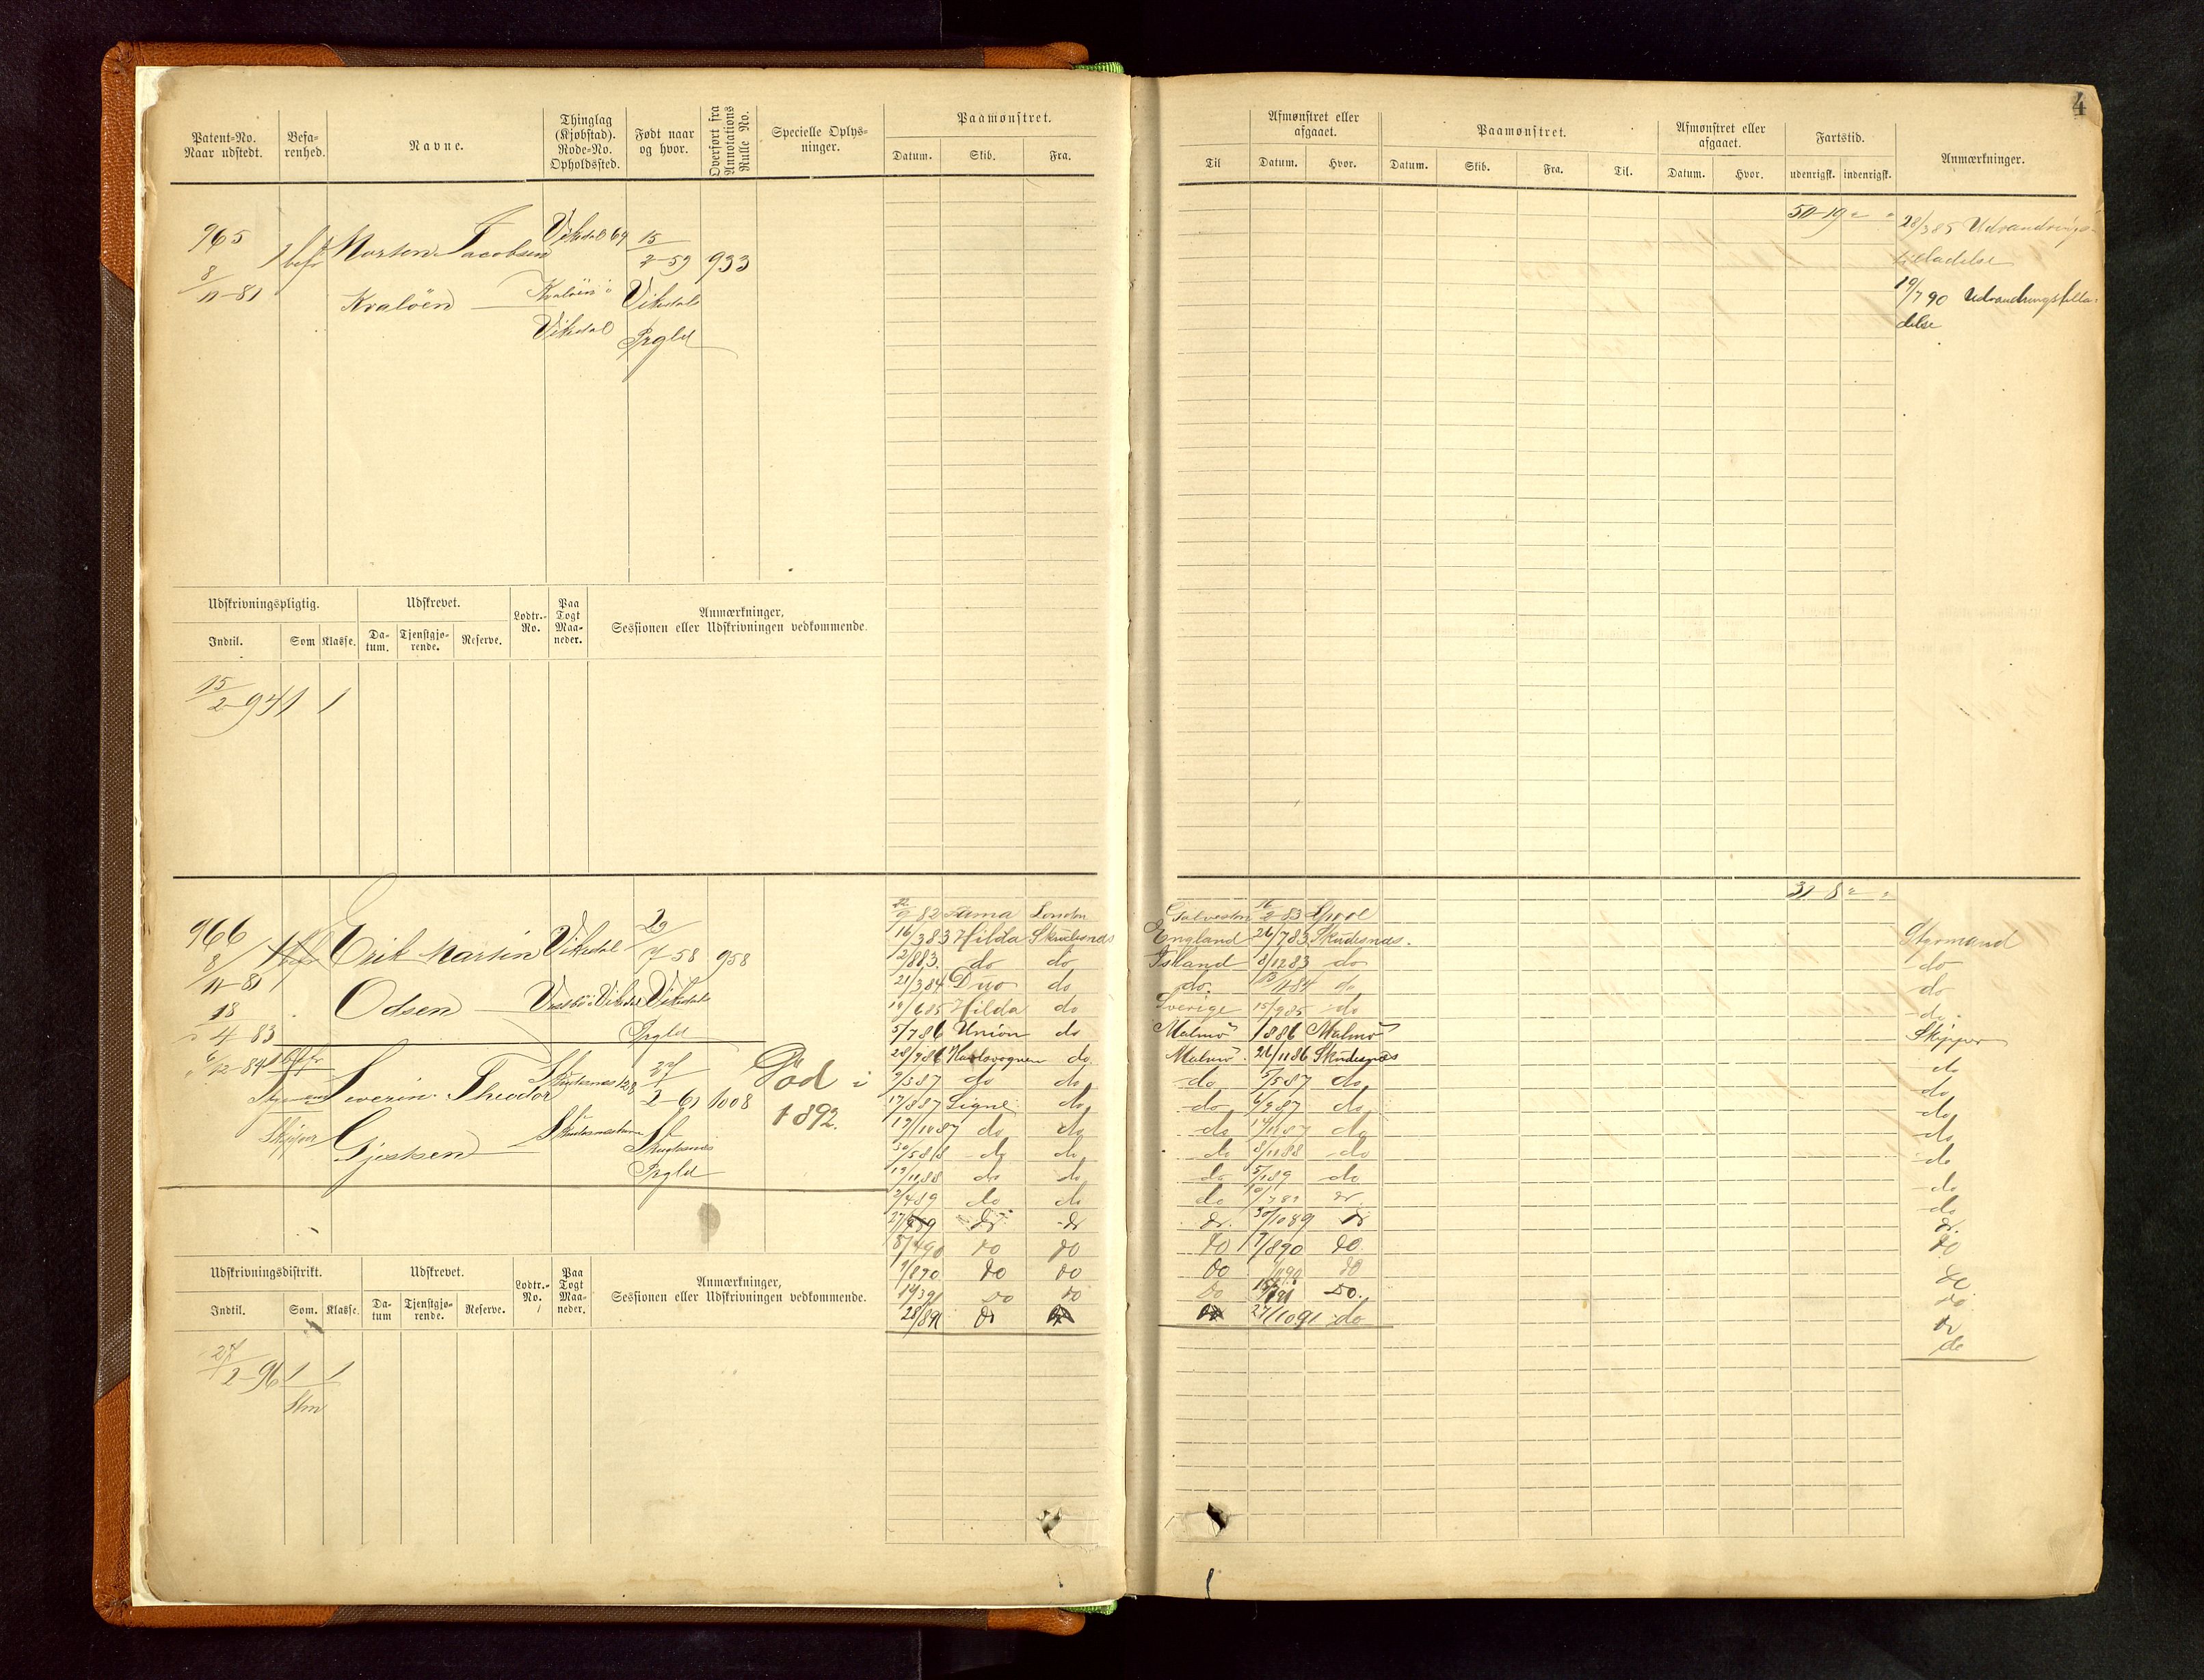 4
Patent-No. Naar udstedt.
Befarenhed.
Navne.
Thinglag (Kjøbstad). Rode-No. Opholdssted.
Født naar og hvor.
Overført fra Annotations Rulle No.
Specielle Oplysninger.
Paamønstret.
Datum. Skib. Fra.
Til
Afmønstret eller afgaaet.
Datum. Hvor.
Paamønstret.
Datum. Skib. Fra. Til.
Afmønstret eller afgaaet.
Datum. Hvor.
Fartstid.
udenrigsk. indenrigsk.
Anmærkninger.
965
8/11-81
1 befr
Morten Jacobsen
Kraløen
Vikedal 69
Kraløen i
Vikedal
15/2-59
Vikedal
Prgld
933
50-19
28/3 85 Udvandrings-
tilladelse
19/7 90 Udvandringstilla-
delse
Udskrivningspligtig.
Indtil. Som Klasse.
Udskrevet.
Datum. Tjenstgjørende. Reserve.
Lodtr.-No.
Paa Togt Maaneder.
Anmærkninger,
Sessionen eller Udskrivningen vedkommende.
15/2-94 1 1
966
8/11-81
18/4 83
Erik Martin
Odsen
Vikedal
2/7 58
Vikedal
Prgld
958
6/12-84 1 befr
Styrmand
Skipper
Severin Theodor
Gjessen
Skudesnes 128
Skudesneshavn
27/2-61
Skudesnes
Prgld
1008
Död i
1892.
31-8
9 82 Fama London Galveston 16/2 83 Lpool
16/3 83 Hilda Skudesnes England 26/7 83 Skudesnes. Styrmand
12/8 83 do do Island 8/12 83 do do
21/3 84 Duo do do. do do
19/6 85 Hilda do Sverige 15/9 85 do do.
5/7 86 Union do Malmö 1 8 86 Malmö Skipper
28/9 86 do. Malmö. 26/11 86 Skudesnes do
9/3 87 do do do 5/5 87 do do
17/8 87 Signe do do 6/9 87 do do
19/10 87 do do do 14/11 87 do do
30/5 88 do do do 8/11 88 do do
19/11 88 do do do 5/1 89 do do
2/4 89 do do do 10/7 89 do
do do do 30/10 89 do
8/4 90 do do do 7/8 90 do do
9/8 90 do do do do do
14/3 91 do do do do. do
28/8 91 do 27/10 91 do do
Udskrivningsdistrikt.
Indtil. Som. Klasse.
Udskrevet.
Datum Tjenstgjørende. Reserve.
Lodtr.-No.
Paa Togt Maaneder.
Anmærkninger,
Sessionen eller Udskrivningen vedkommende.
27/2-96 1 1
Stm